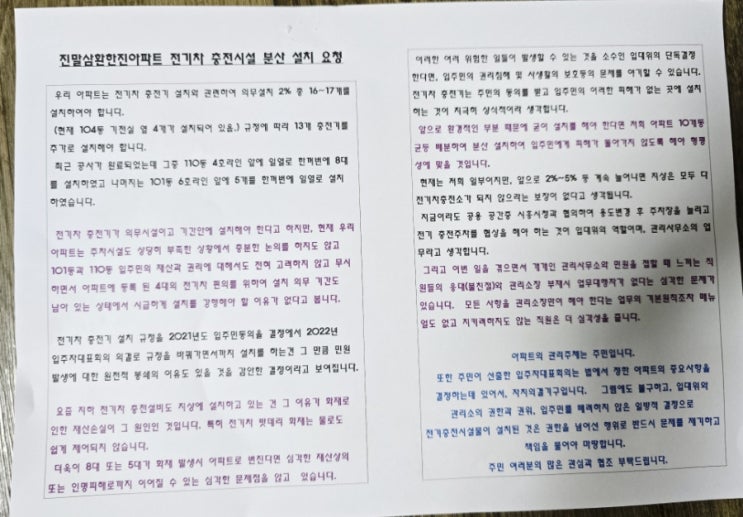 진말삼환한진아파트 전기차 충전시설 분산 설치 요청
우리 아파트는 전기차 충전기 설치와 관련하여 의무설치 2% 총 16~17개를
설치하여야 합니다.
(현재 104동 기전실 옆 4개가 설치되어 있음.) 규정에 따라 13개 충전기를
추가로 설치해야 합니다.
최근 공사가 완료되었는데 그중 110동 4호라인 앞에 일열로 한꺼번에 8대
를 설치하였고 나머지는 101동 6호라인 앞에 5개를 한꺼번에 일열로 설치
하였습니다.
전기차 충전기가 의무시설이고 기간안에 설치해야 한다고 하지만, 현재 우리
아파트는 주차시설도 상당히 부족한 상황에서 충분한 논의를 하지도 않고
101동과 110동 입주민의 재산과 권리에 대해서도 전혀 고려하지 않고 무시
하면서 아파트에 등록 된 4대의 전기차 편의를 위하여 설치 의무 기간도
남아 있는 상태에서 시급하게 설치를 강행해야 할 이유가 없다고 봅니다.
전기차 충전기 설치 규정을 2021년도 입주민동의을 결정에서 2022년
입주자대표회의 의결로 규정을 바꿔가면서까지 설치를 하는건 그 만큼 민원
발생에 대한 원천적 봉쇄의 이유도 있을 것을 감안한 결정이라고 보여집니다.
요즘 지하 전기차 충전설비도 지상에 설치하고 있는 건 그 이유가 화재로
인한 재산손실이 그 원인인 것입니다. 특히 전기차 밧데리 화재는 물로도
쉽게 제어되지 않습니다.
더욱이 8대 또는 5대가 화재 발생시 아파트로 번진다면 심각한 재산상의
또는 인명피해로까지 이어질 수 있는 심각한 문제점을 않고 있습니다.
이러한 여러 위험한 일들이 발생할 수 있는 것을 소수인 입대위의 단독결정
한다면, 입주민의 권리침해 및 사생활의 보호등의 문제를 야기할 수 있습니다.
전기차 충전기는 주민의 동의를 받고 입주민의 이러한 피해가 없는 곳에 설치
하는 것이 지극히 상식적이라 생각합니다.
앞으로 환경적인 부분 때문에 굳이 설치를 해야 한다면 저희 아파트 10개동
균등 배분하여 분산 설치하여 입주민에게 피해가 돌아가지 않도록 해야 형평
성에 맞을 것입니다.
현재는 저희 일부이지만, 앞으로 2%~5% 등 계속 늘어나면 지상은 모두 다
전기차충전소가 되지 않으리라는 보장이 없다고 생각됩니다.
지금이라도 공용 공간중 시흥시청과 협의하여 용도변경 후 주차장을 늘리고
전기 충전주차를 협상을 해야 하는 것이 입대위의 역할이며, 관리사무소의 업
무라고 생각합니다.
그리고 이번 일을 겪으면서 개개인 관리사무소의 민원을 접할 때 느끼는 직
원들의 응대(불친절)와 관리소장 부재시 업무대행자가 없다는 심각한 문제가
있습니다. 모든 사항을 관리소장만이 해야 한다는 업무의 기본원칙조차 메뉴
얼도 없고 지키려하지도 않는 직원은 더 심각성을 줍니다.
아파트의 관리주체는 주민입니다.
또한 주민이 선출한 입주자대표회의는 법에서 정한 아파트의 중요사항을
결정하는데 있어서, 자치의결기구입니다. 그럼에도 불구하고, 입대위와
관리소의 권한과 권위, 입주민를 배려하지 않은 일방적 결정으로
전기충전시설물이 설치된 것은 권한을 넘어선 행위로 반드시 문제를 제기하고
책임을 물어야 마땅합니다.
주민 여러분의 많은 관심과 협조 부탁드립니다.